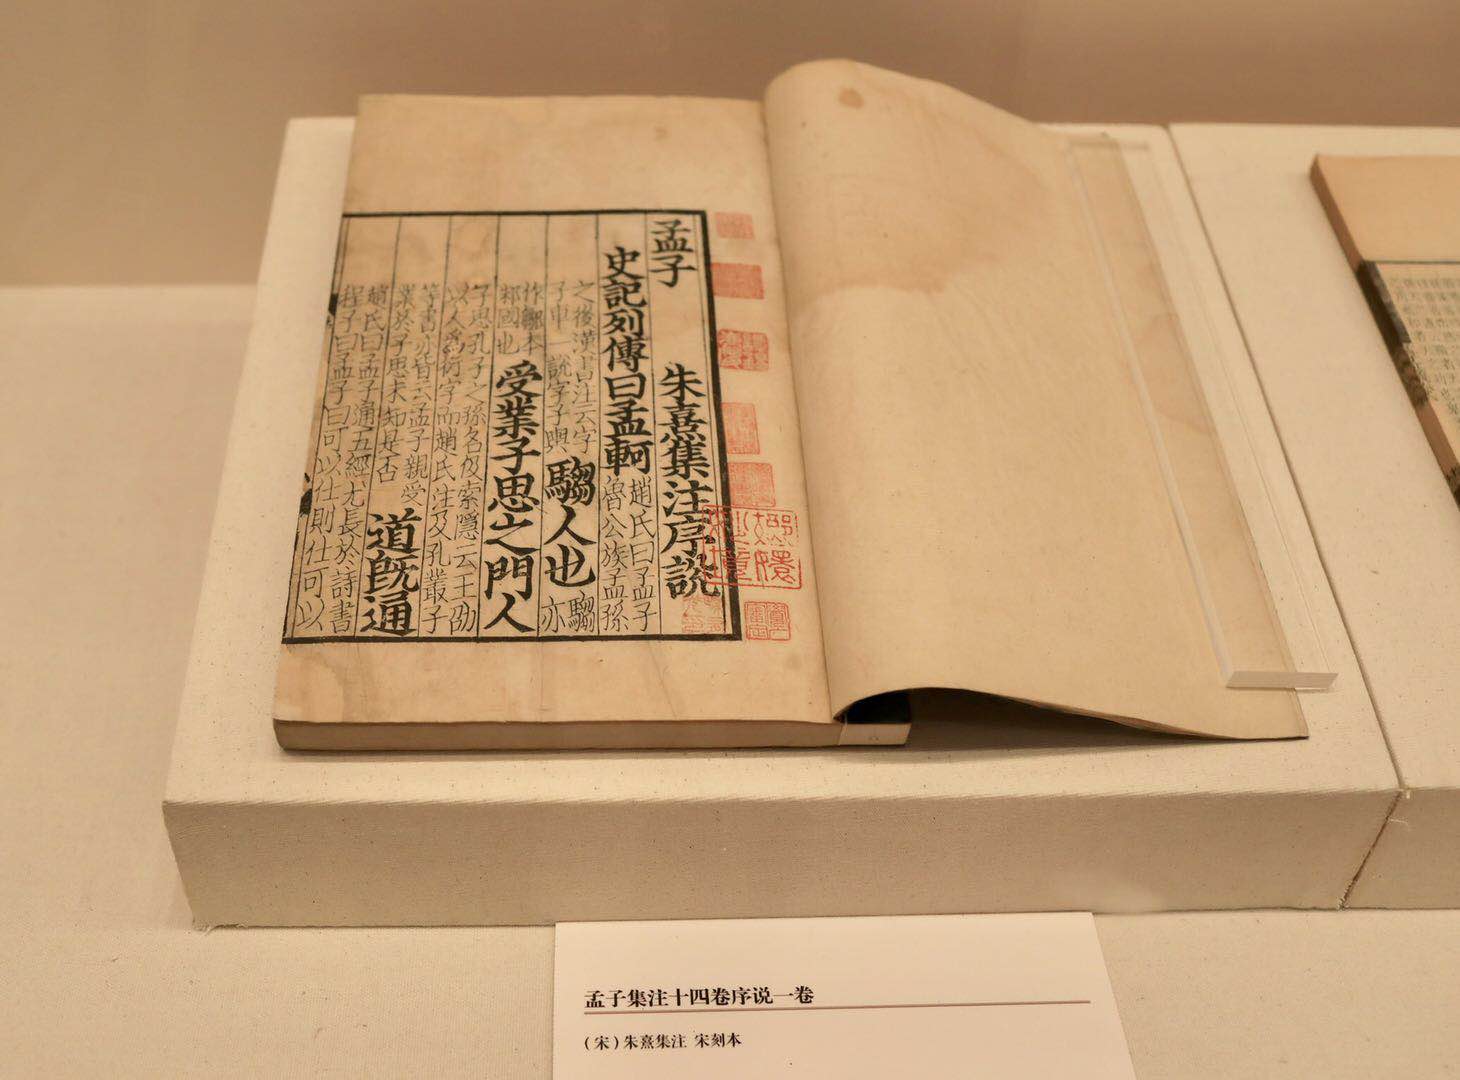 孟子 朱熹集注序説
史記列傳曰孟軻
趙氏曰孟子
魯公族孟孫
之後漢書注云字
子車一說字子輿
騶人也
騶
亦
作鄒本
邾國也
受業子思之門人
子思孔子之孫名伋索隱云王劭
以人爲衍字而趙氏注及孔叢子
等書亦皆云孟子親受
業於子思未知是否
道旣通
趙氏曰孟子通五經尤長於詩書
程子曰孟子曰可以仕則仕可以
孟子集注十四卷序说一卷
(宋)朱熹集注 宋刻本